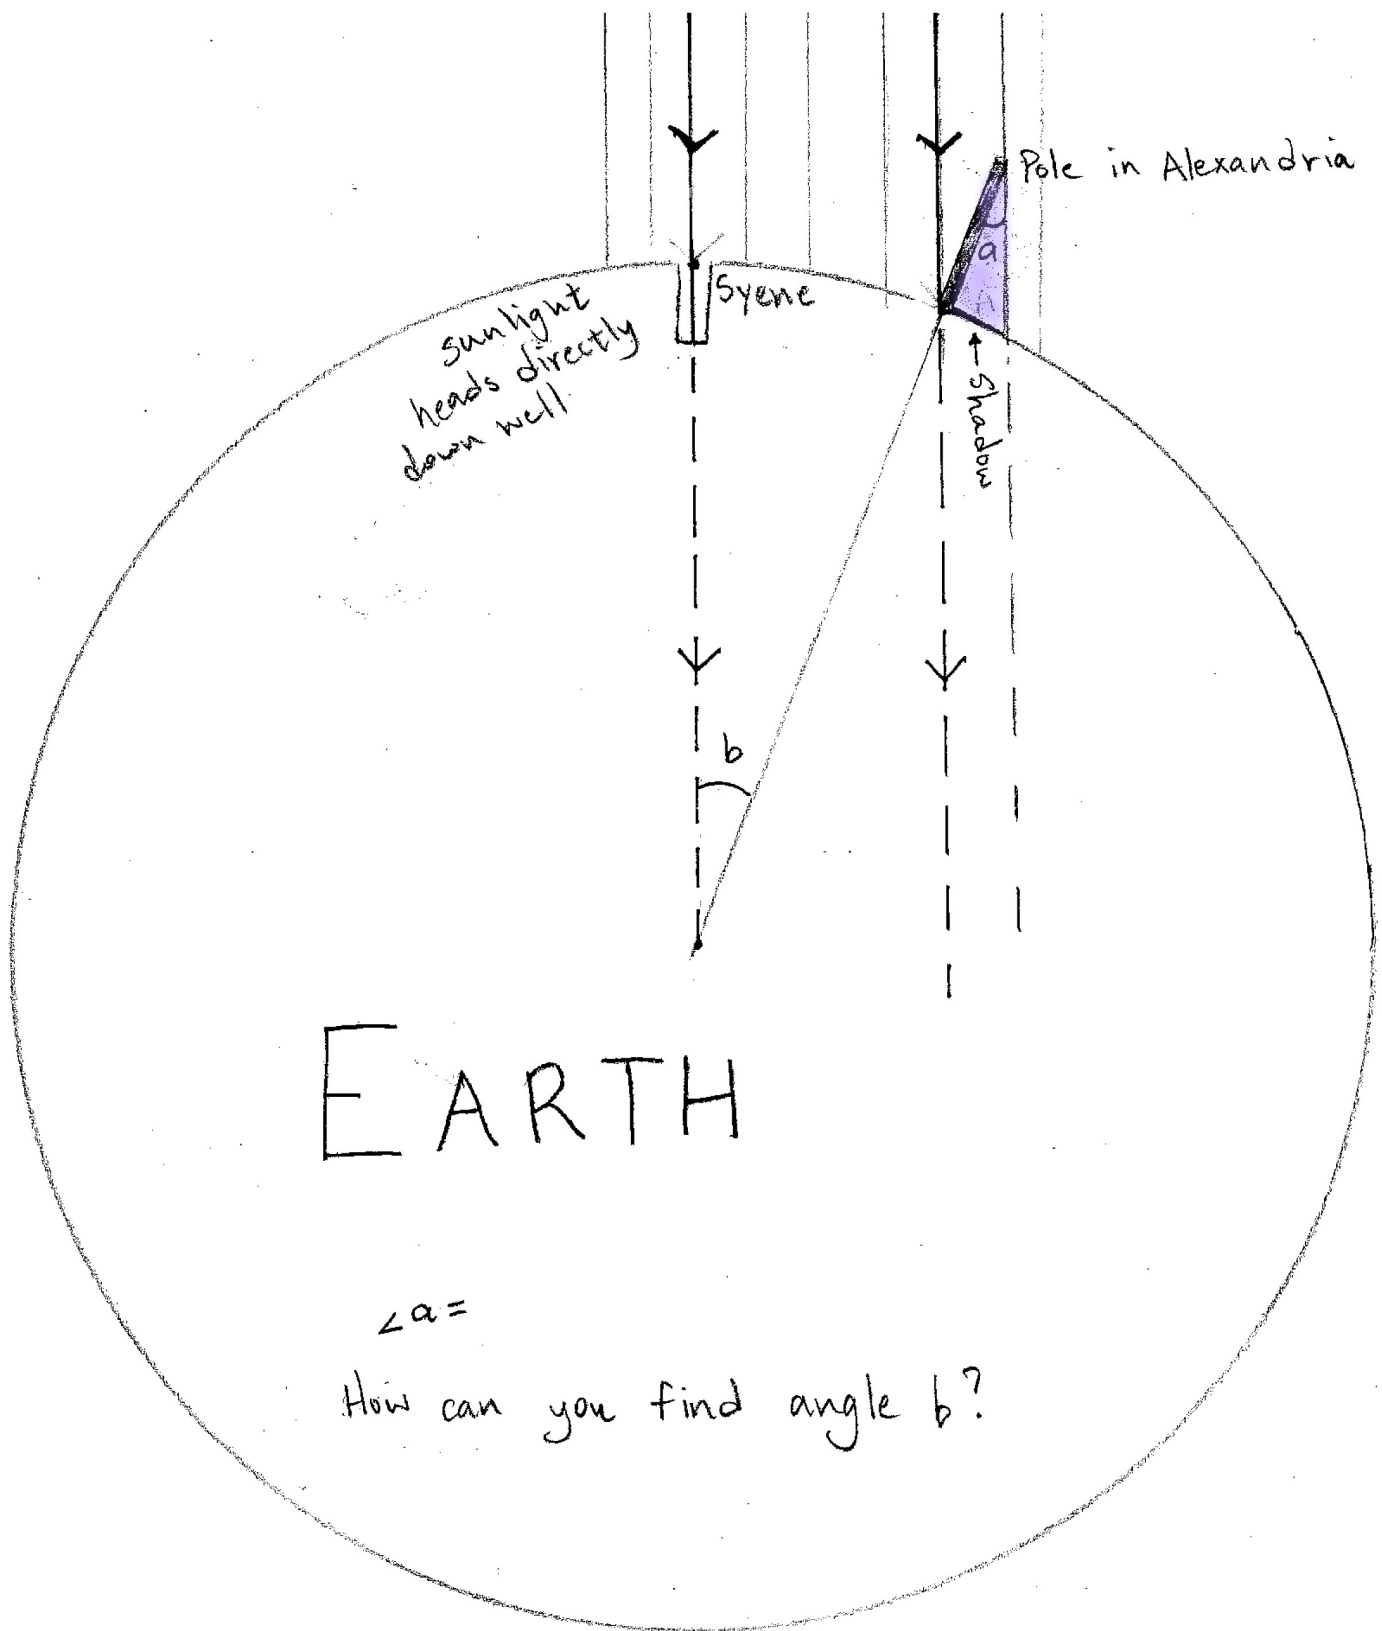 Pole in Alexandria
a
Syene
sunlight
heads directly
down well
Shadow
b
EARTH
∠a=
How can you find angle b?